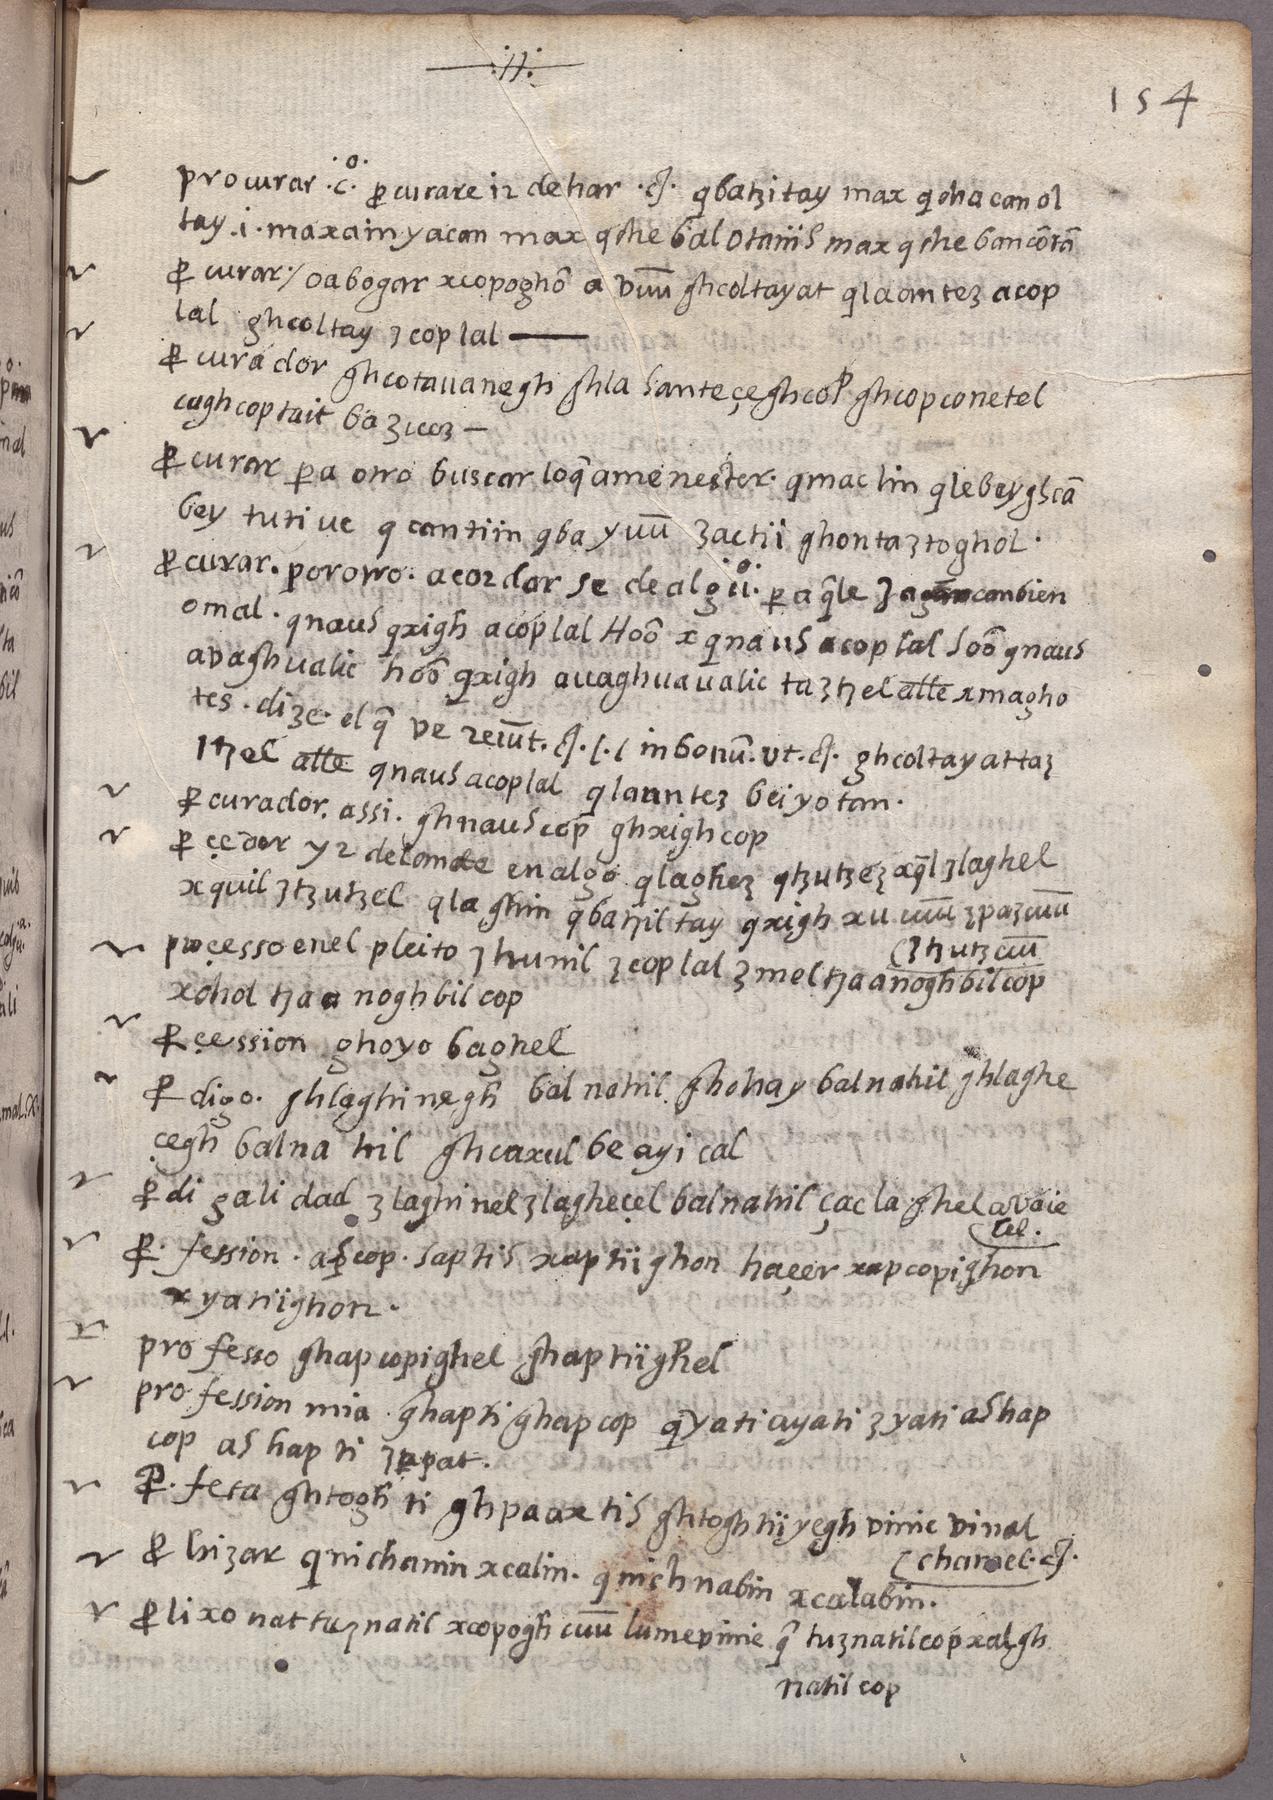 154
procurar .c̊. ꝓcurare iz dehar .cȷ. qbatzitay max q̃ chacan ol
tay .i. maxainyacan max qche bal otaniis max qche bancõtã
ꝓcurar / o abogar xcopoghõ a vũ ghcoltayat qlaantez acop
lal ghcoltay zcoplal
ꝓcurador ghcotauanegh ghla santeçeghcop ghcopconetel
cagh coptait
ꝓcurar p̱a otro buscar loq̃ amenester. qmaclin qlebeyghcã
bey tutiue q cantiin qba yuũ zactii ghontaztoghol.
ꝓcurar. por otro. acordar se de algũ. p̱a q̃le haga bien
o mal. qnaus qxigh acoplal Hoõ x qnaus acoplal soõ qnaus
avaghualic hoõ qxigh auaghuaualic taztzel alle xmagho
tes. dize. el q̃ ve .cȷ. in bonũ. vt .cȷ. ghcoltayattaz
ltzel alle qnausacoplal qlaantez beiyotan.
ꝓcurador. assi. ghnaus cop ghxighcop
ꝓçeder yr delante en algo qlaghez qtzutzez xq̃l zlaghel
xquil ztzutzel qlaghin qbatzil tay qxigh xu
proçesso enel pleito zhunil zcoplal zmeltzaanoghbilcop
(ztzutz cũ
xohol tzaanoghbilcop
ꝓçession ghoyobaghel
ꝓdigo. ghlaghinegh balnahil ghchay balnahil ghlaghe
çegh balnahil ghcaxul beayical
ꝓdigalidad zlaghinel zlagheçel balnahil çaclaghel avaie
tel.
ꝓ.fession. aꝑcop. saptis xaptiighon haçer xapcopighon
xyatiighon.
professo ghapcopighel ghaptiighel
profession mia ghapti ghapcop q̃yati ayati zyati ashap
cop ashapti zapat.
ꝓ.feta ghtogh ti ghpaaxtis ghtoghtiiyegh vinic vinal
(chamel .cȷ.
ꝓhizar qnichanin xcalin. qnichnabin xcalabin.
ꝓlixo nattuznatil xcopogh cũ lumevinic q̃ tuznatilcopxalgh
natil cop